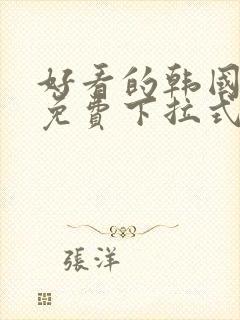 好看的韩国
免費下拉式
張洋